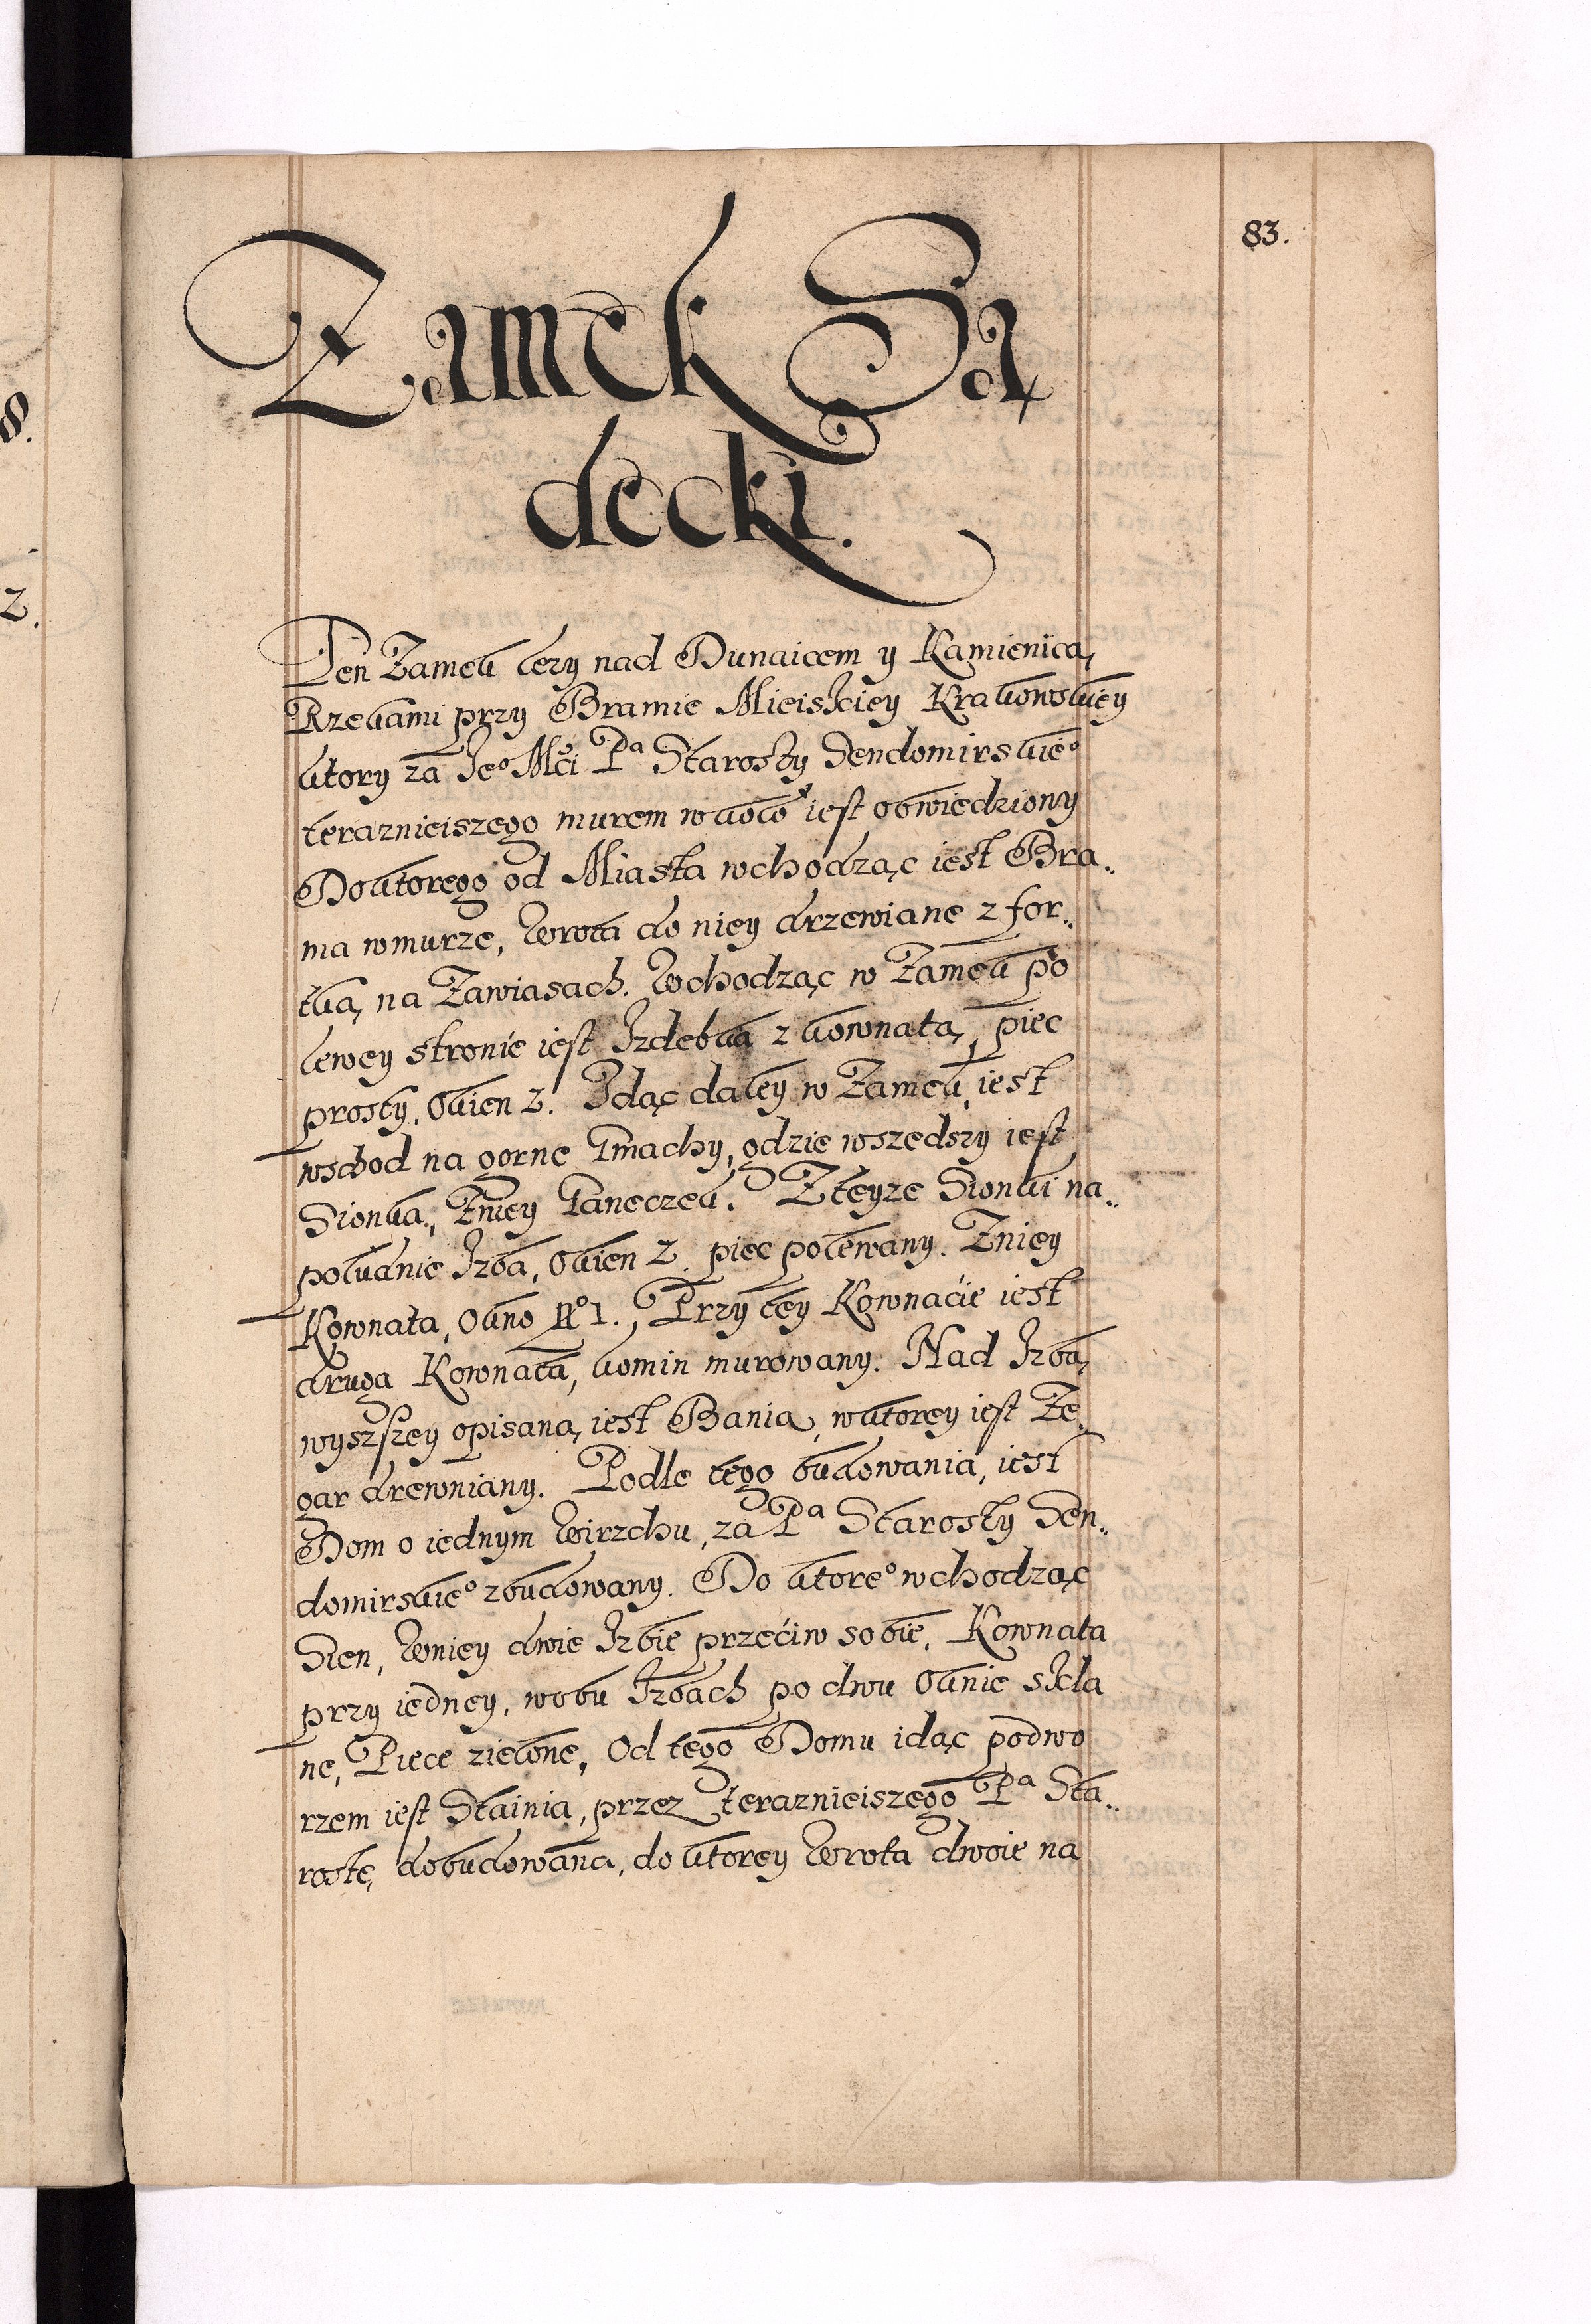 83.
Zamek Są
decki.
Ten Zamek leży nad Dunaicem y Kamienicą
Rzekami przy Bramie Mieiskiey Krakowskiey
ktory za Je° Mći Pᵃ Starosty Sendomirskie°
teraznieiszego murem wkoło iest obwiedziony
Do ktorego od Miasta wchodząc iest Bra„
ma w murze, Wrota do niey drzewiane z for„
tką na Zawiasach. Wchodząc w Zamek po
lewey stronie iest Izdebka z kownatą, piec
prosty, Okien 2. Idąc daley w Zamek iest
wschod na gorne Gmachy, gdzie wszedszy iest
Sionka, Zniey Ganeczek. Zteyze Sionki na„
południe Izba, Okien 2. piec polewany. Zniey
Kownata, Okno N° 1. Przy tey Kownaćie iest
druga Kownata, komin murowany. Nad Izbą
wyszszey opisaną iest Bania, w ktorey iest Ze
gar drewniany. Podle tego budowania, iest
Dom o iednym Wirzchu, za Pᵃ Starosty Sen„
domirskie° zbudowany. Do ktore° wchodząc
Sien, Wniey dwie Izbie przećiw sobie, Kownata
przy iedney, w obu Izbach po dwu Oknie skla
ne, Piece zielone, Od tego Domu idąc podwo
rzem iest Stainia, przez teraznieiszego Pᵃ Sta„
rostę dobudowana, do ktorey Wrota dwoie na
8.
2.